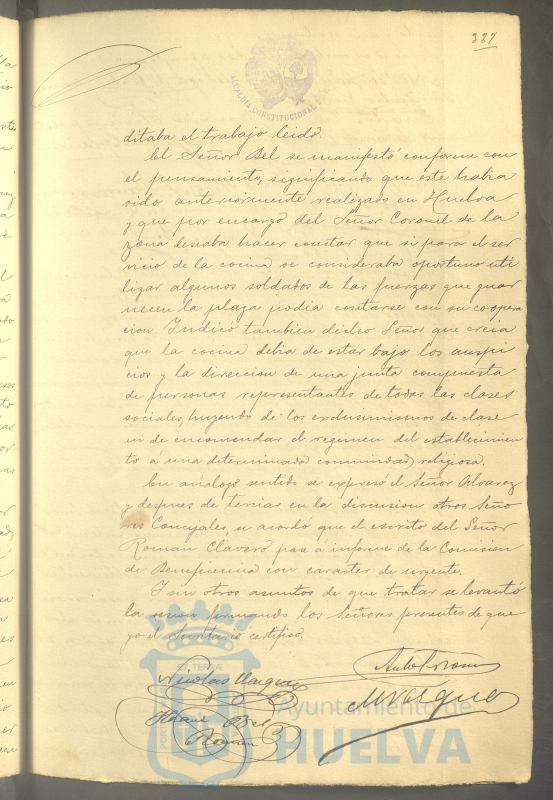 387
ALCALDIA CONSTITUCIONAL
ditaba el trabajo leido.
El Señor Bel se manifestó conforme con
el pensamiento, significando que este habia
sido anteriormente realizado en Huelva
y que por encargo del Señor Coronel de la
zona deseaba hacer constar que si para el ser
vicio de la cocina se consideraba oportuno uti
lizar algunos soldados de las fuerzas que guar
necen la plaza podia contarse con su coopera
cion. Indicó tambien dicho Señor que creia
que la cocina debia de estar bajo los auspi
cios y la direccion de una junta compuesta
de personas representantes de todas las clases
sociales, huyendo de los exclusivismos de clase
ni de encomendar el regimen del establecimien
to á una determinada comunidad religiosa.
En analogo sentido se expresó el Señor Alvarez
y despues de terciar en la discusion otros Seño
res Concejales, se acordó que el escrito del Señor
Roman Clavero pase á informe de la Comision
de Beneficencia con caracter de urgente.
Y sin otros asuntos de que tratar se levantó
la sesion firmando los Señores presentes de que
yo el Secretario certifico.
Nicolas Vazquez
M Vazquez
Bel
Roman
Ayuntamiento de
HUELVA